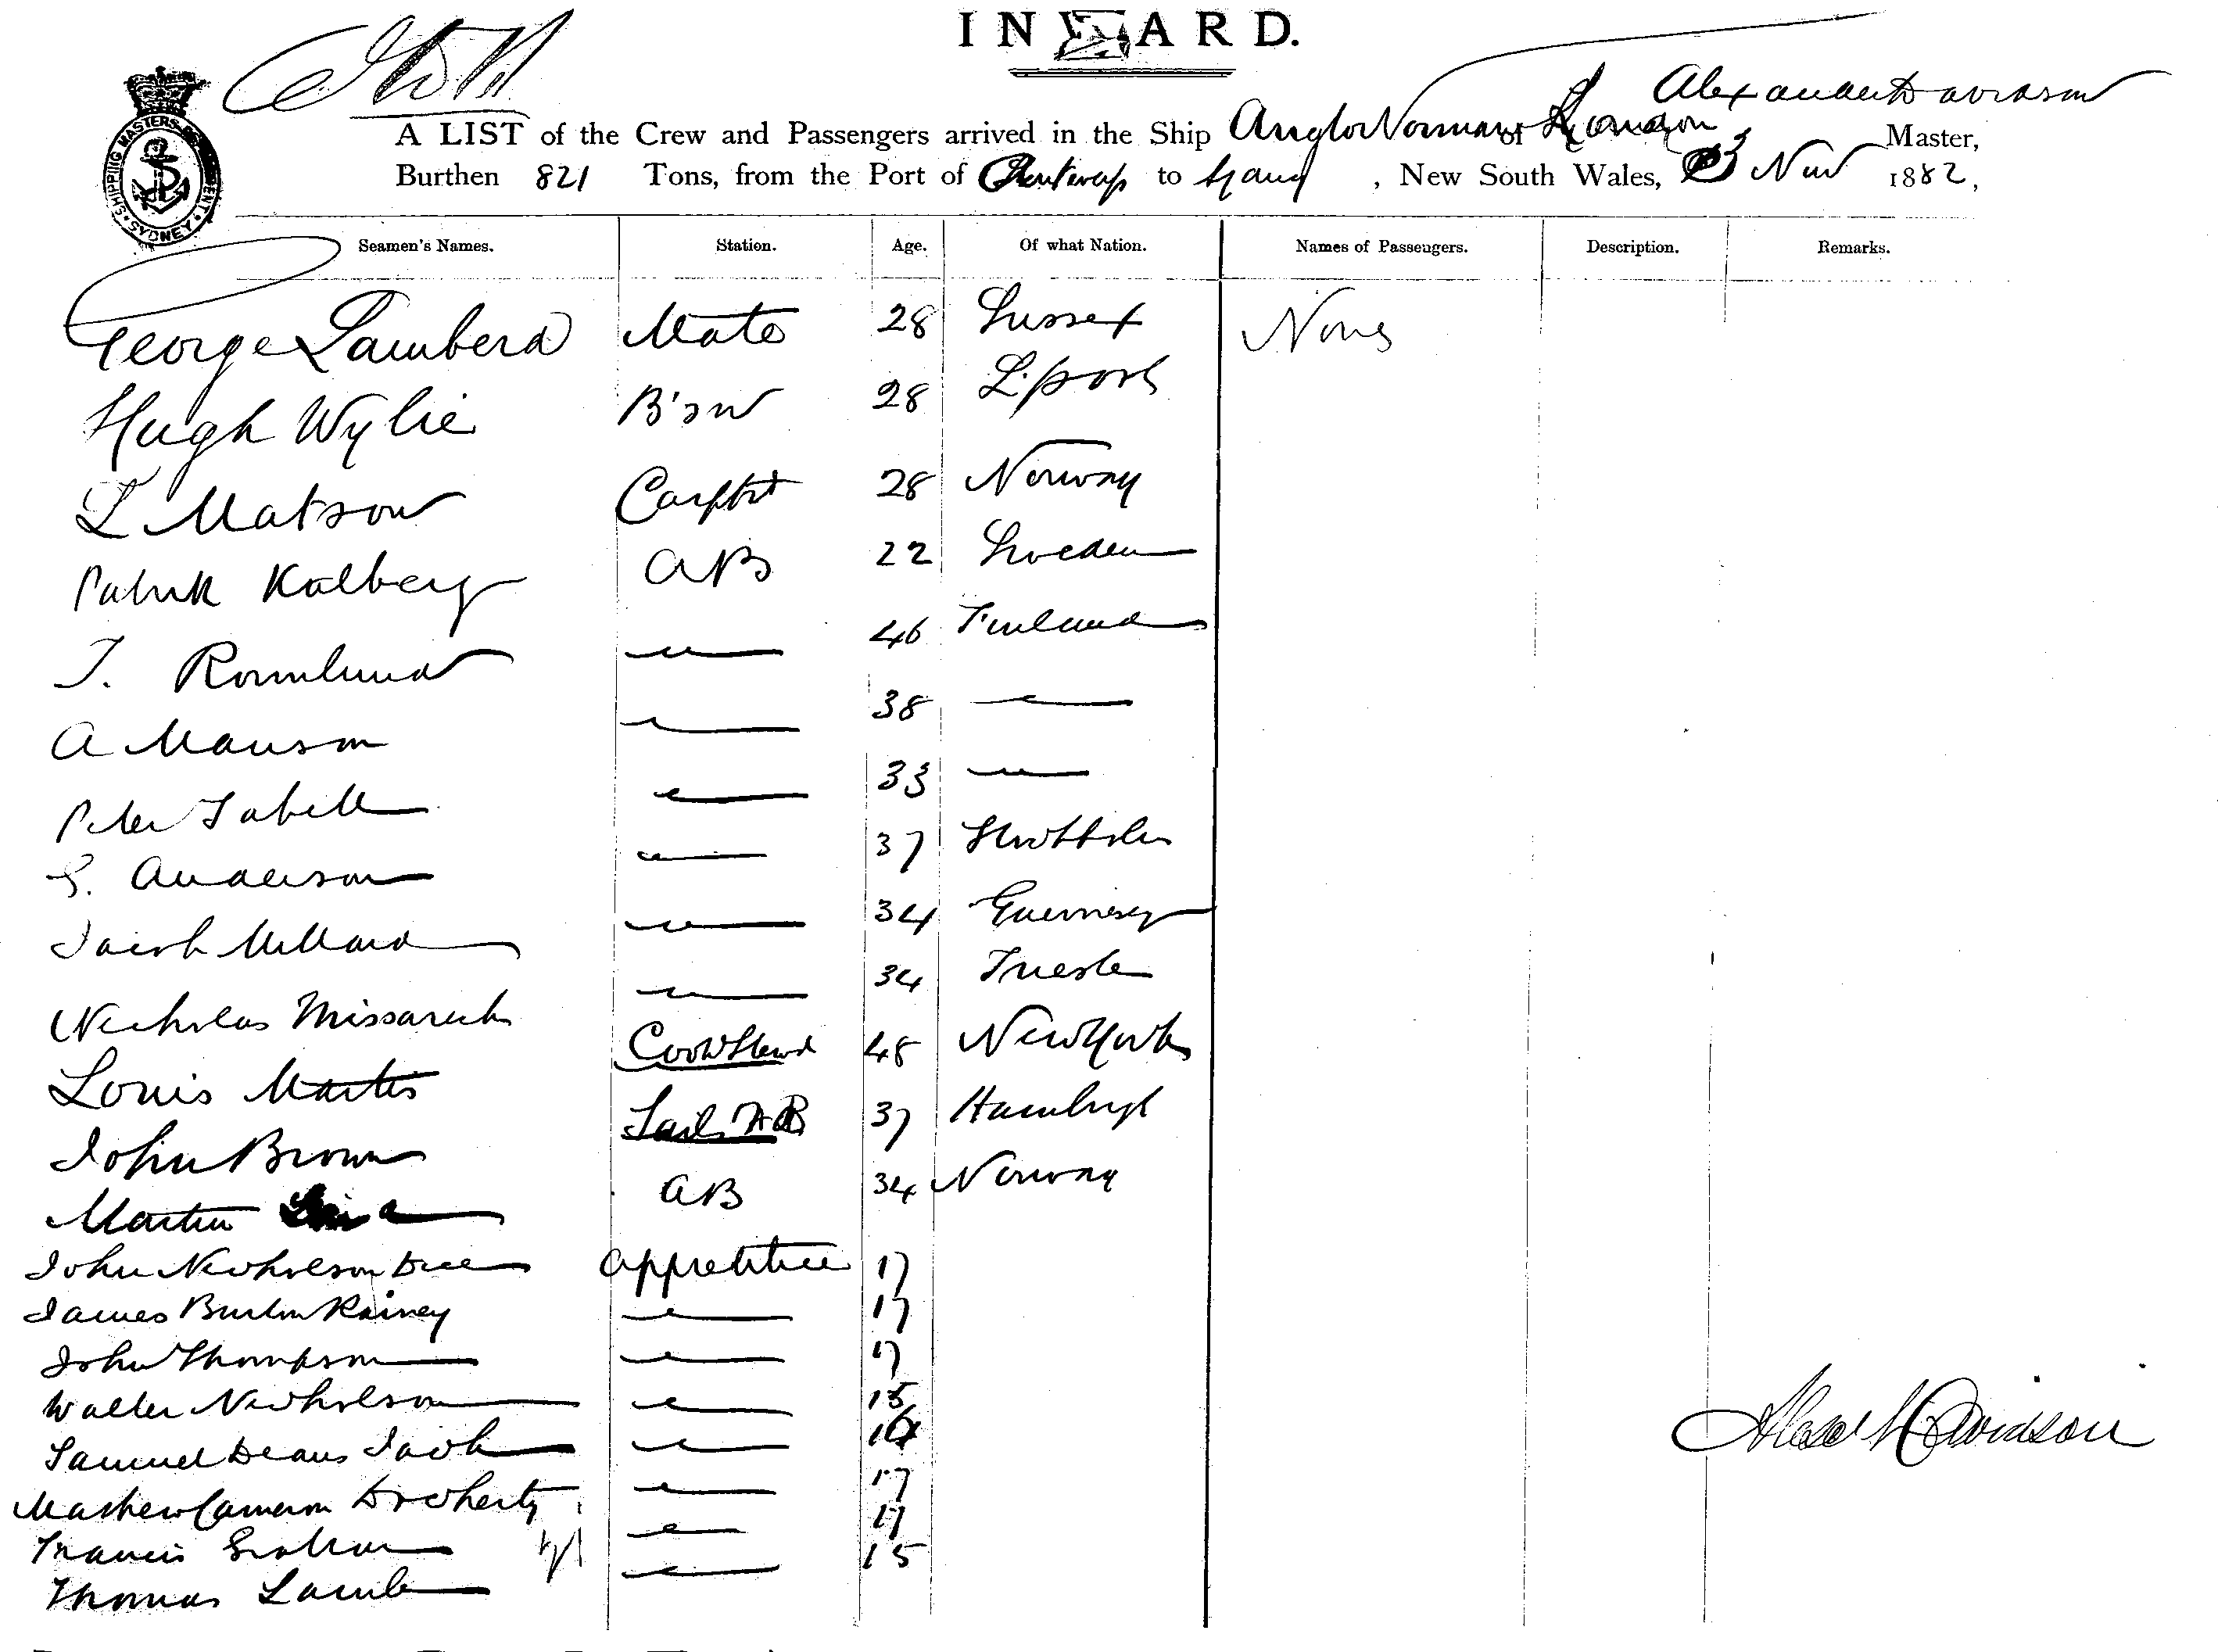 INWARD.
SHIPPING MASTERS DEPARTMENT
SYDNEY
Alexander Davidson
A LIST of the Crew and Passengers arrived in the Ship Anglo Norman of London Master,
Burthen 821 Tons, from the Port of Antwerp to Syd, New South Wales, 3 Nov 1882,
Seamen's Names. Station. Age. Of what Nation. Names of Passengers. Description. Remarks.
George Lamberd Mate 28 Sussex None
Hugh Wylie B'sn 28 L.pool
L Matson Carptr 28 Norway
Patrik Kalberg AB 22 Sweden
T. Romlund 〃 46 Finland
A Manson 〃 38 〃
Peter Tabell 〃 33 〃
Anderson 〃 37
Jacob Millard 〃 34 Guernsey
Nicholas 〃 34 Trieste
Louis Martis Cook Stewd 48 New York
John Brown Sail. AB 37 Hamburgh
Martin AB 34 Norway
John Nicholson Dee Apprentice 17
James Burton Rainey 〃 17
John Thompson 〃 17
Walter Nicholson 〃 15
Samuel Deans Jack 〃 16
Mathew Cameron Docherty 〃 17
Francis Graham 〃 17
Thomas Lamb 〃 15
Alexr Davidson